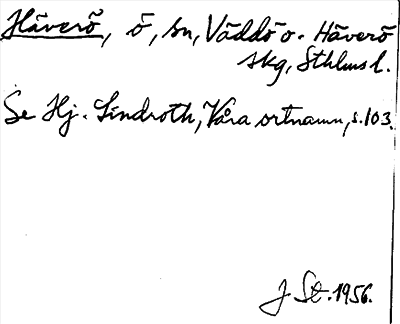 Häverö, ö, sn, Väddö o. Häverö
skg, Sthlms l.
Se Hj. Lindroth, Våra ortnamn, s. 103.
J St. 1956.